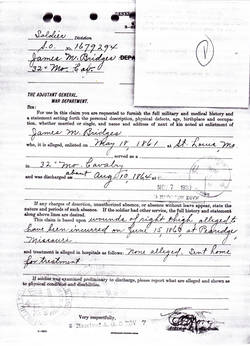 Soldier Division
S.O. No. 1679294
James M. Bridges
32" Mo. Cav.
THE ADJUTANT GENERAL,
WAR DEPARTMENT.
Sir:
For use in this claim you are requested to furnish the full military and medical history and
a statement setting forth the personal description, physical defects, age, birthplace and occupa-
tion, whether married or single, and name and address of next of kin noted at enlistment of
James M. Bridges
who it is alleged, enlisted on May 18, 1861 at St. Louis Mo
served as a
in 32" Mo. Cavalry
and was discharged about Aug 10, 1864 at
If any charges of desertion, unauthorized absence, or absence without leave appear, state the
nature and periods of such absence. If the soldier had other service, the full history and statement
along above lines are desired.
This claim is based upon wounds of right thigh, alleged to
have been incurred on June 15, at Pearidge
Missouri
and treatment is alleged in hospitals as follows: None alleged. Sent home
for treatment
If soldier was examined preliminary to discharge, please report what are alleged and shown as
to physical condition and disabilities.
Very respectfully,